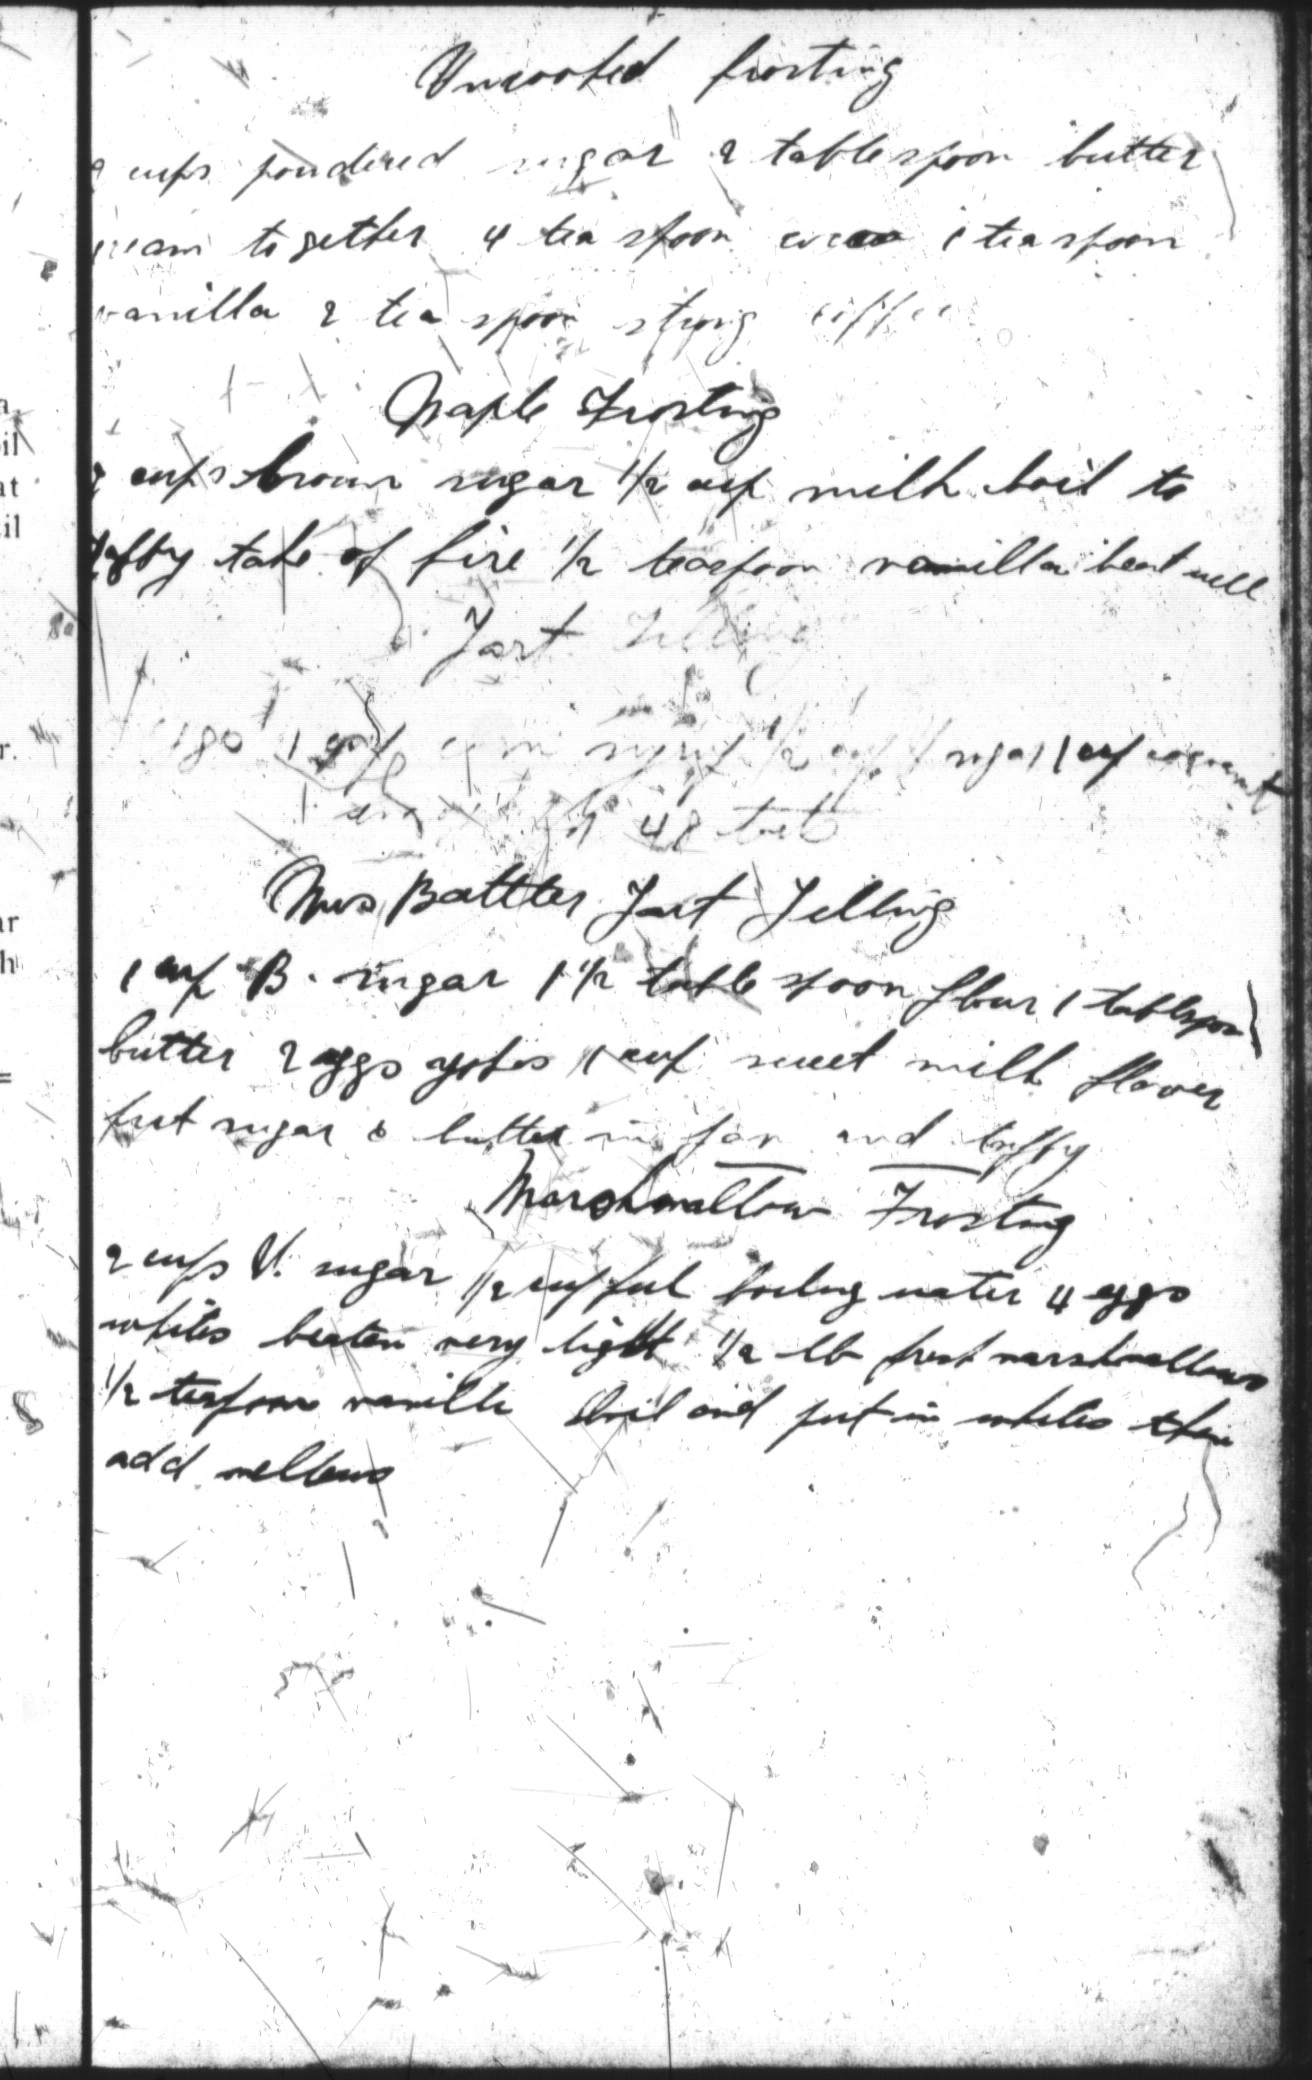 Uncooked frosting
2 cups powdered sugar 2 tablespoon butter
cream together 4 tea spoon cocoa 1 teaspoon
vanilla 2 tea spoon strong coffee
Maple Frosting
2 cups brown sugar 1/2 cup milk boil to
taffy take of fire 1/2 teaspoon vanilla beat well
Tart Filling
1 cup syrup 1/2 cup sugar 1 cup cocoanut
48 tarts
Mrs Battler Tart Filling
1 cup B. sugar 1 1/2 table spoon flour 1 tablespoon
butter 2 eggs yokes 1 cup sweet milk flaver
put sugar & butter in pan and taffy
Marshmallow Frosting
2 cups V. sugar 1/2 cupful boiling water 4 eggs
whites beaten very light 1/2 lb fresh marshmallows
1/2 teaspoon vanilla boil and put in whites then
add mellows
a
oil
at
il
r.
ar
h
=